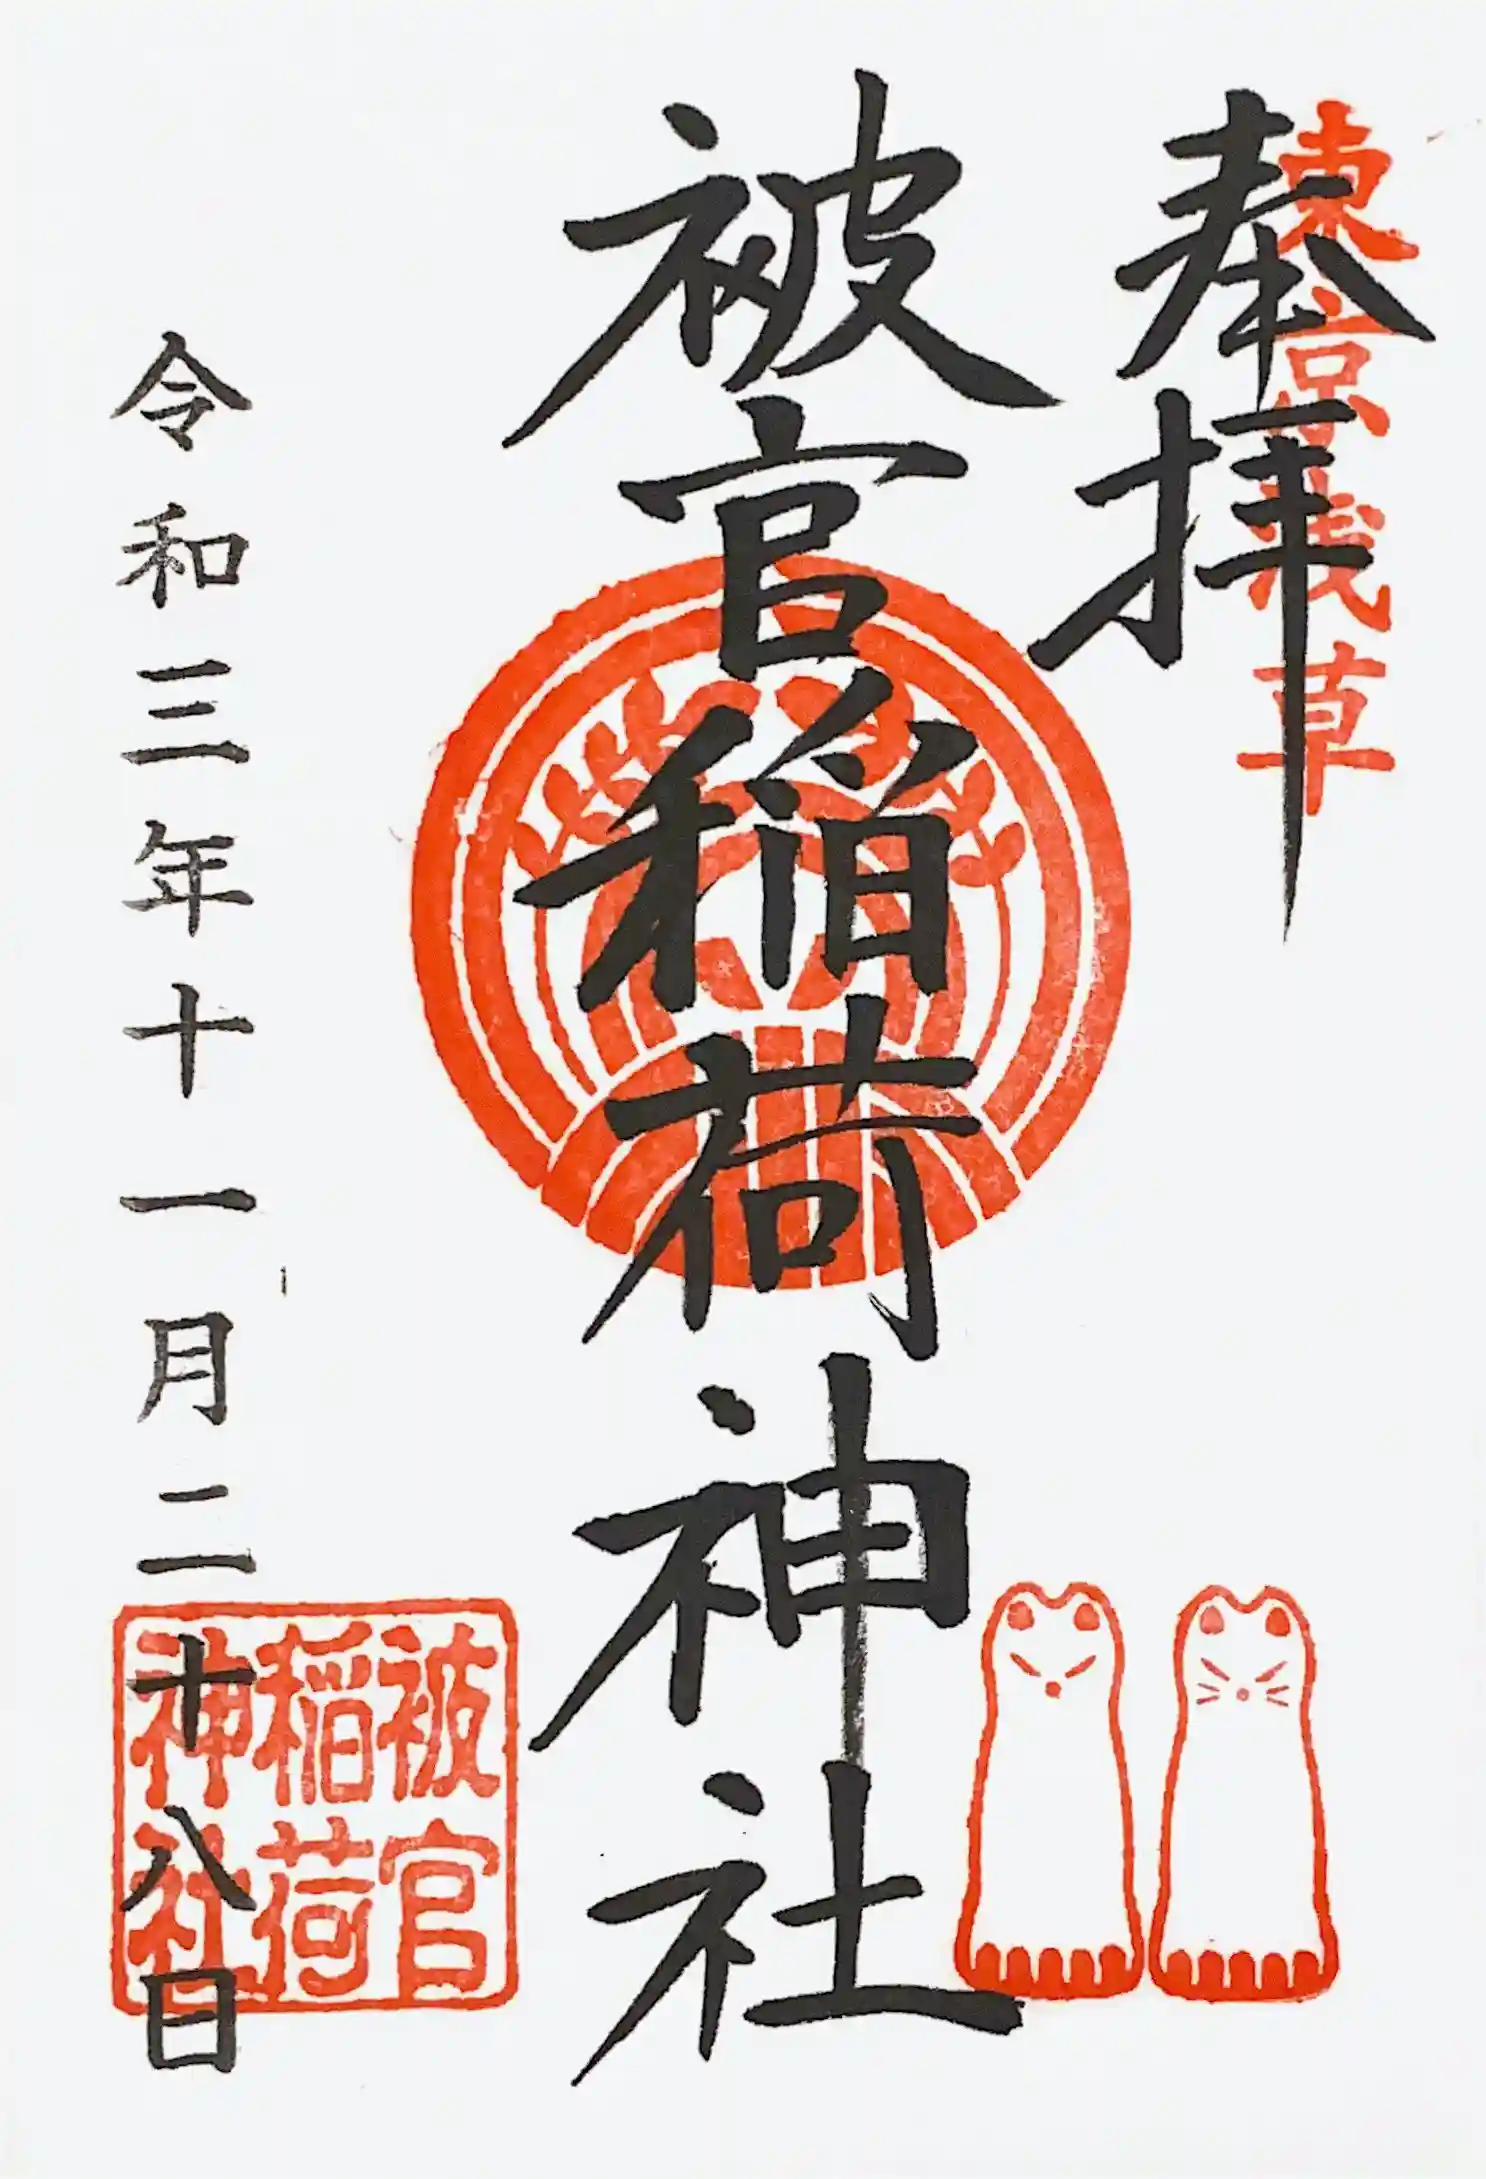 東京浅草
奉拝
被官稲荷神社
被官
稲荷
神社
令和三年十一月二十八日